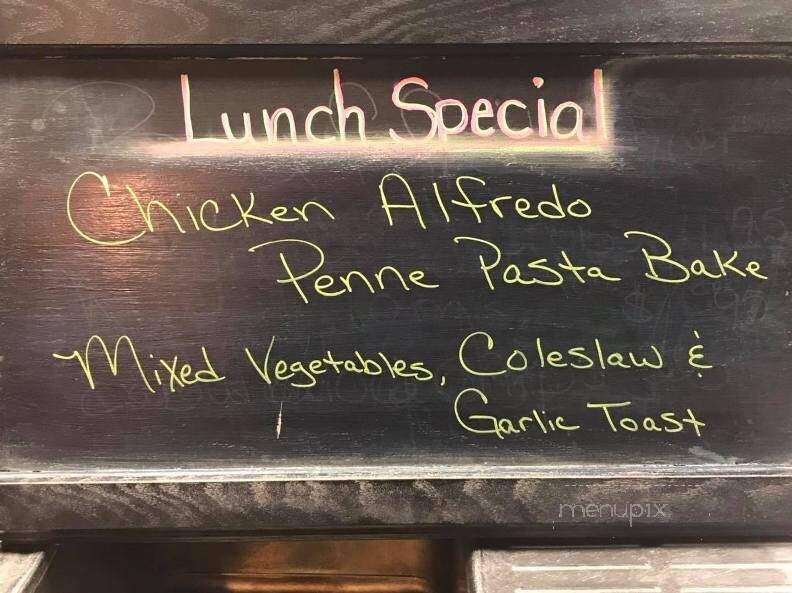 Lunch Special
Chicken Alfredo
Penne Pasta Bake
Mixed Vegetables, Coleslaw &
Garlic Toast
menupix